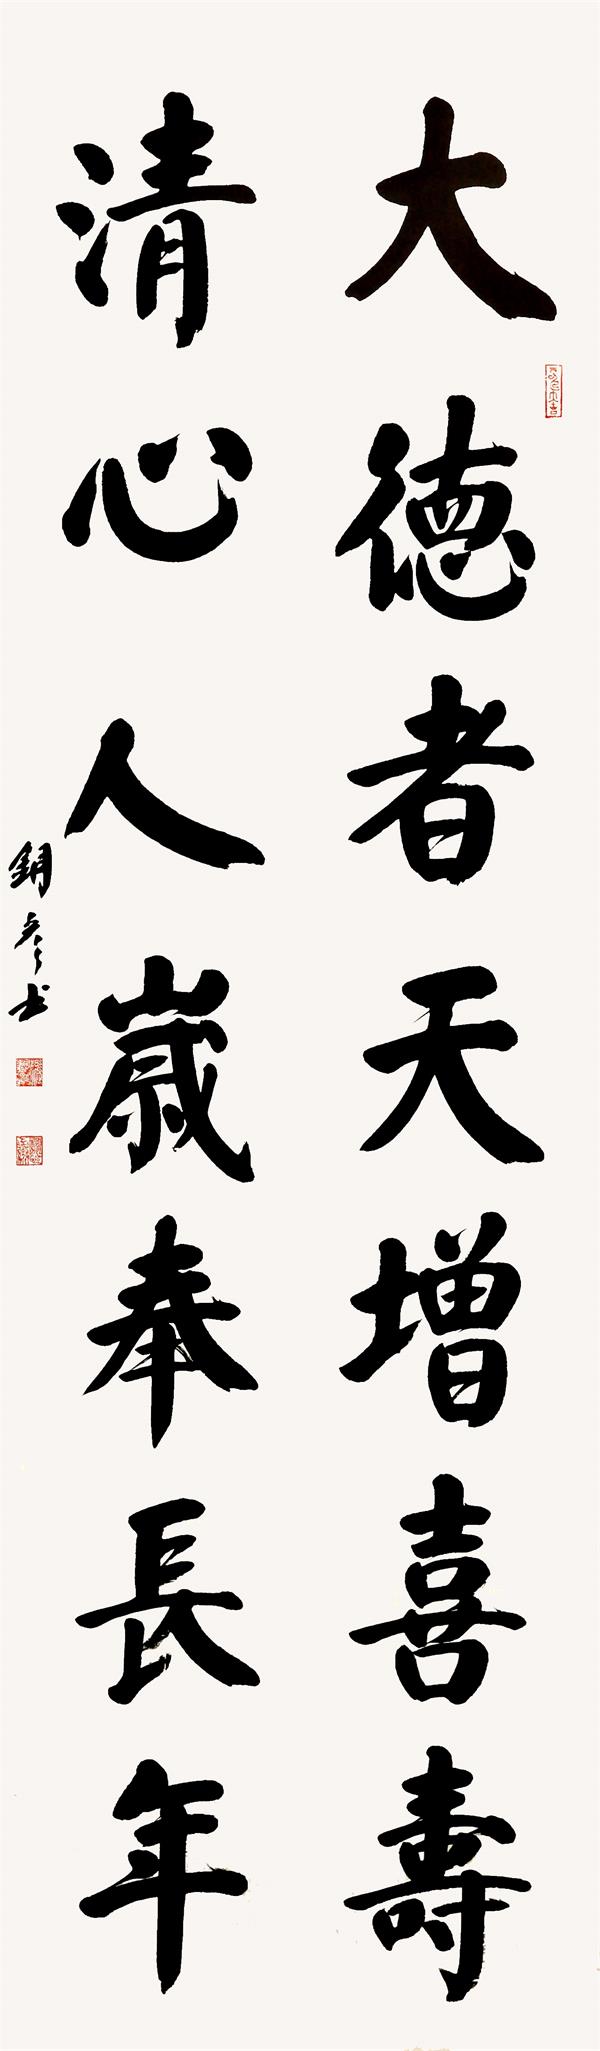 大德者天增喜壽
清心人歲奉長年